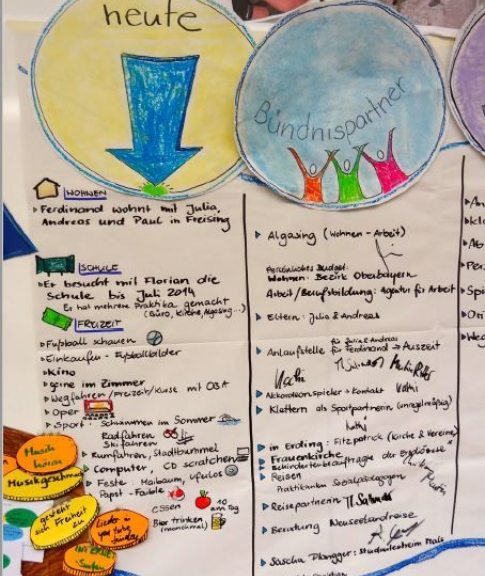 heute
WOHNEN
Ferdinand wohnt mit Julia,
Andreas und Paul in Freising
SCHULE
Er besucht mit Florian die
Schule bis Juli 2014
Er hat mehrere Praktika gemacht
(Büro, Küche, Algasing...)
FREIZEIT
Fußball schauen
Einkaufen - Fußballbilder
Kino
gerne im Zimmer
Wegfahren / Freizeit/Kurse mit OBA
Oper
Sport - Schwimmen im Sommer
Radfahren
Skifahren
Rumfahren, Stadtbummel
Computer, CD scratchen
Feste: Maibaum, Uferlos
Papst - Faible
Essen
10 am Tag
Bier trinken
(manchmal)
Musik
hören
Musikgeschmack
genießt
sich Freiheit zu
Lieder in
you tube
Surfen
Bündnispartner
Algasing (Wohnen - Arbeit)
Persönliches Budget:
Wohnen: Bezirk Oberbayern
Arbeit/Berufsbildung: Agentur für Arbeit
Eltern: Julia & Andreas
Anlaufstelle für Julia & Andreas
für Ferdinand → Auszeit
Akkordeonspieler → Kontakt
Klettern als Sportpartnerin (unregelmäßig)
in Erding: Fitzpatrick (Kirche & Vereine)
Frauenkirche
Behindertenbeauftragte der Erzdiözese
Reisen
Praktikanten Sozialpädagogen
Reisepartnerin
Beratung Neuseelandreise
Sascha Plangger: Studentenheim Mals